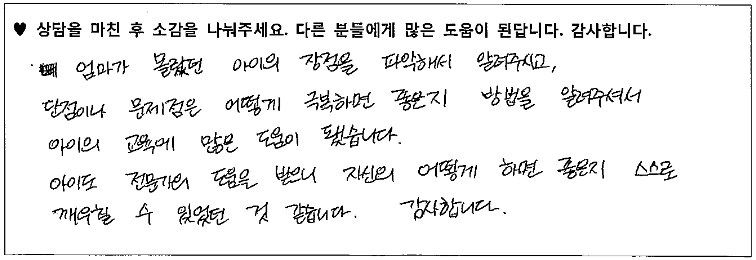 ♥ 상담을 마친 후 소감을 나눠주세요. 다른 분들에게 많은 도움이 된답니다. 감사합니다.
엄마가 몰랐던 아이의 장점을 파악해서 알려주시고,
단점이나 문제점은 어떻게 극복하면 좋은지 방법을 알려주셔서
아이의 교육에 많은 도움이 됐습니다.
아이도 전문가의 도움을 받으니 자신의 어떻게 하면 좋은지 스스로
깨우칠 수 있었던 것 같습니다. 감사합니다.